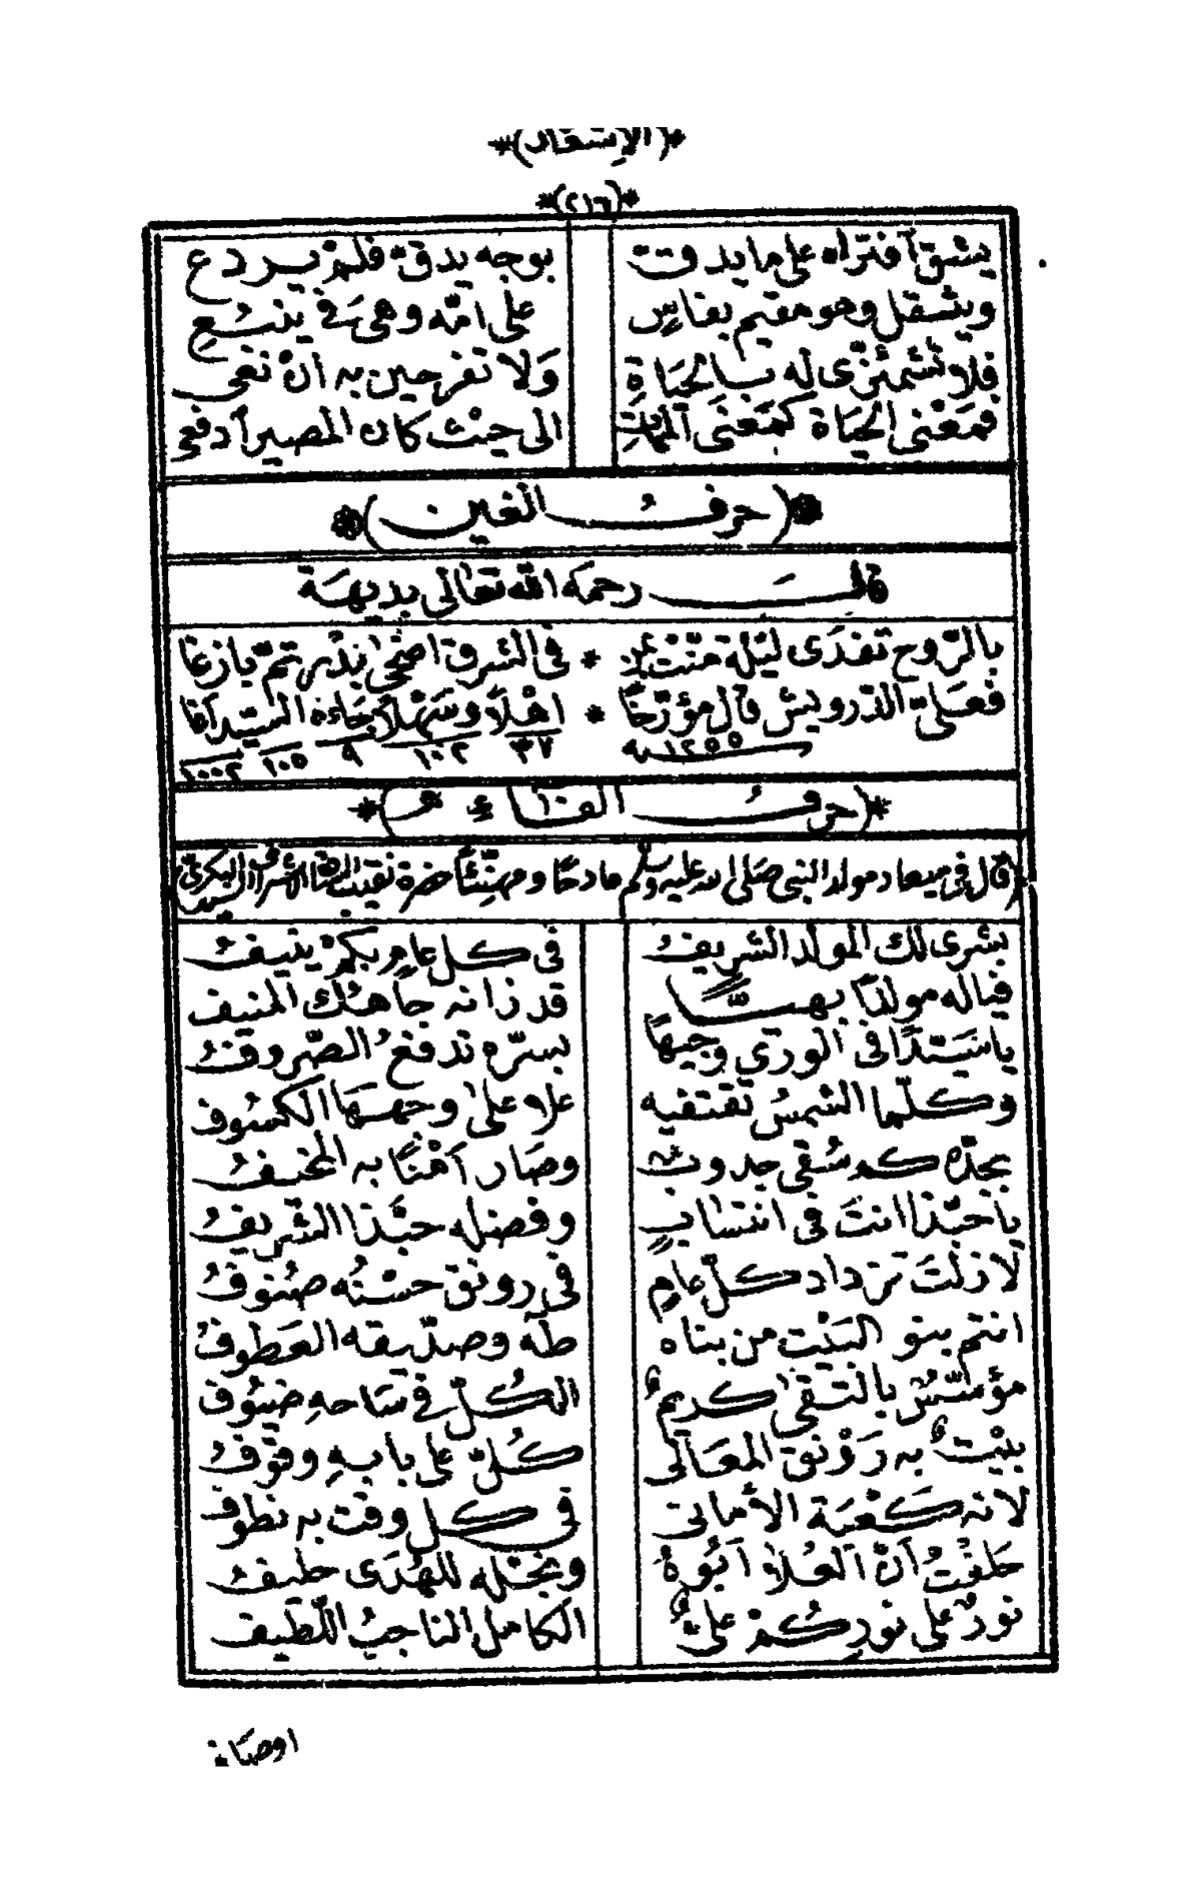 *(الإشعار)*
*(٢١٦)*
يشق افتراه على ما يدقت بوجه يدق فلم يردع
ويثقل وهو مقيم بفاس على امّه وهي في ينبُع
فلا تشمئزّى له بالحياة وَلا تفرحين به انْ نعى
فمَعْنى الحيَاة كمَعنَى الممات الى حيْث كان المصير ادفعى
*(حرفُ الغين)*
قالَ رحمه الله تعالى بديهة
بالرّوح تفدَى ليْلة منّت * فى الشرق اضحى بدْر تمّ بازغا
فعَلىّ الدرويش قال مؤرّخًا * اهْلاً وسَهْلاً جَاءه السيّد آغا
سنه ١٢٥٥ ٣٧ ١٠٢ ٩ ١٠٥ ١٠٠٢
*(حرفُ الفاء)*
(قال فى ميعاد مولد النبى صلى الله عليه وسلم مادحًا ومهنّئًا حضرة نقيب الاشراف السيد البكرىّ)
بشرى لك المولد الشريفُ فى كل عام بكمْ ينيفُ
فياله مولدًا بهيًّا قد زانه جاهك المنيف
ياسَيّدًا فى الورى وجيهًا بسرّه تدفعُ الصّروفُ
وكلّما الشمسُ تقتفيه علا على وجههَا الكسُوف
بجدّه كم سُقى جدوب وصَار اَمْنًا به المخيفُ
ياحبّذا انتَ فى انتسابٍ وفضله حبّذا الشّريفُ
لازلتَ تزداد كلّ عامٍ فى رونق حسْنُه صنُوفُ
انتم بنو البَيْت من بناه طهَ وصدّيقه العَطوفُ
مؤسّسٌ بالتقى كريمٌ الكُلّ فى سَاحهِ ضيُوف
بيْتٌ به رَوْنق المعَالى كُلّ على بابهِ وقوفُ
لانه كَعْبَة الأمانى فى كل وقت به نطوف
حلفْتُ انّ العُلا ابُوهُ ونجْله للهُدَى حليفُ
نورٌ على نورِكُمْ علىٌّ الكامل الناجبُ اللّطيف
اوصَافه